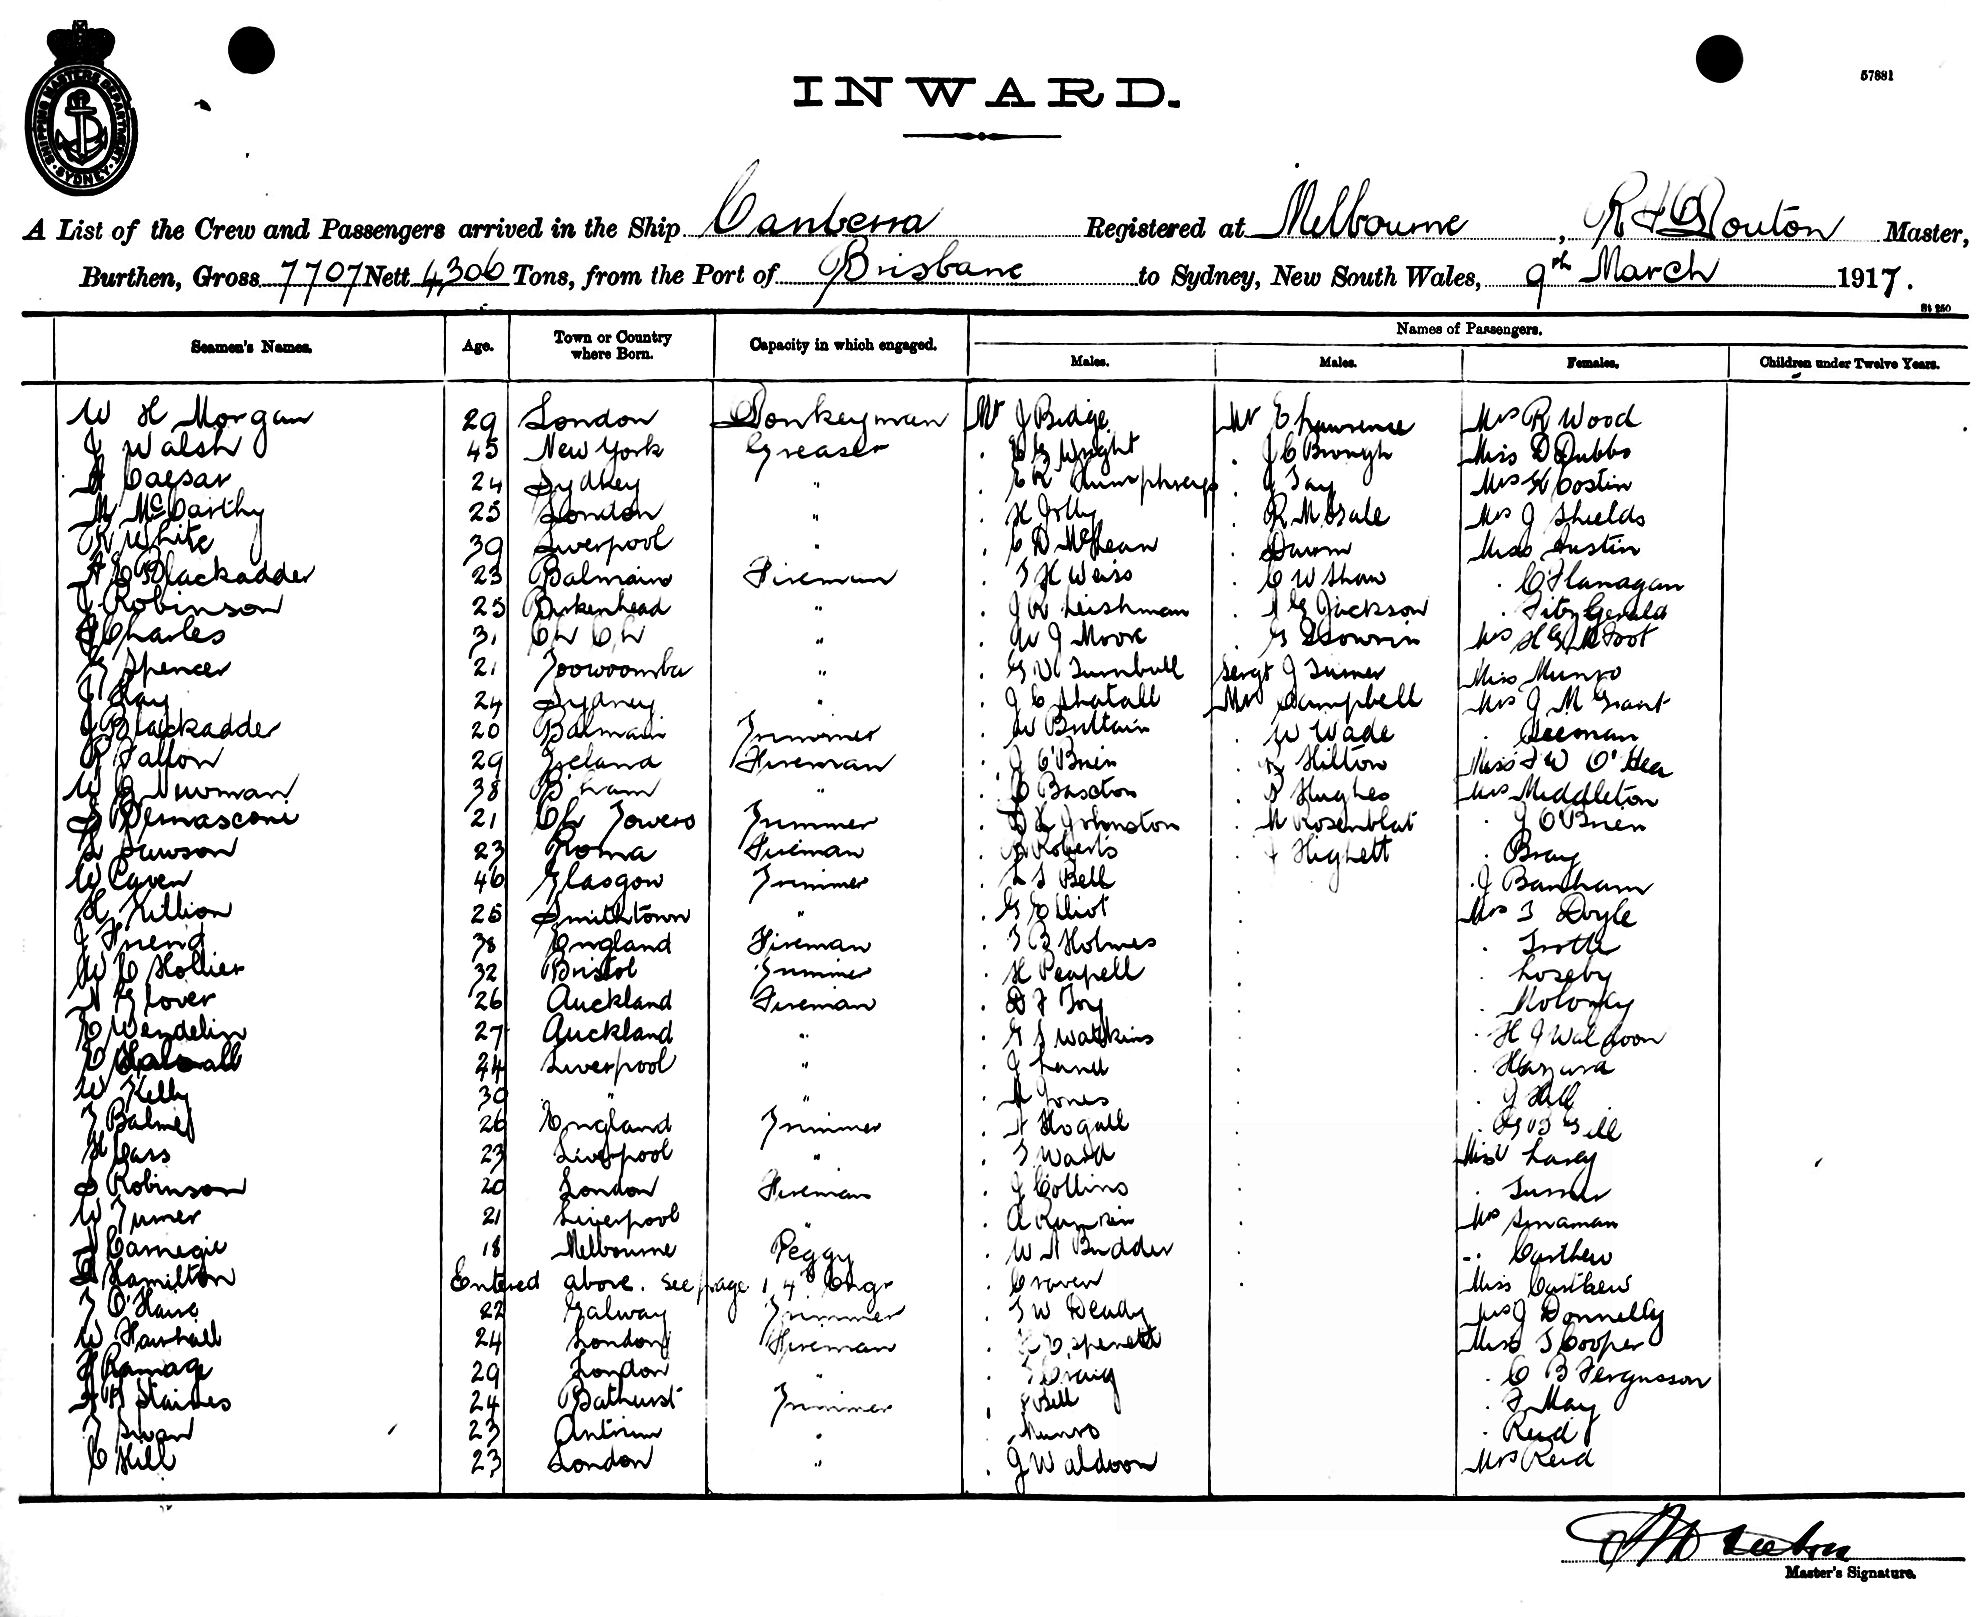 SHIPPING MASTERS DEPARTMENT
SYDNEY
57881
INWARD.
A List of the Crew and Passengers arrived in the Ship Canberra Registered at Melbourne, R Douton Master,
Burthen, Gross 7707 Nett 4,306 Tons, from the Port of Brisbane to Sydney, New South Wales, 9th March 1917.
St 250
Seamen's Names. Age. Town or Country where Born. Capacity in which engaged. Names of Passengers.
Males. Males. Females. Children under Twelve Years.
W H Morgan 29 London Donkeyman Mr J Bidge Mr E Lawrence Mrs R Wood
J Walsh 45 New York Greaser . E G Wright . J C Brough Miss D Dubbs
A Caesar 24 Sydney " . E R Humphreys . J Tay Mrs H Costin
M McCarthy 25 London " . H Jolly . R Mosale Mrs J Shields
R White 39 Liverpool " . C D McLean . Dawn Miss Austin
A E Blackadder 23 Balmain Fireman . T H Weiss . C W Shaw . O'Flanagan
J Robinson 25 Birkenhead " . J R Leishman . A G Jackson . FitzGerald
J Charles 31 Ch Ch " . W J Moore . G Downin Mrs H G Root
G Spencer 21 Toowoomba " . G V Turnbull Sergt J Turner Miss Munro
J Hay 24 Sydney " . J C Shatall Mr Campbell Mrs J M Grant
J Blackadder 20 Balmain Trimmer . W Brittain . W Wade . Seeman
P Fallon 29 Ireland Fireman . J O'Brien . Hilton Miss F W O'Hea
W B Newman 38 B'ham " . C Baxton . P Hughes Mrs Middleton
S Bernasconi 21 Ch Towers Trimmer . D L Johnston . M Rosenblat . J O'Brien
A Lawson 23 Roma Fireman . B Roberts . J Highett . Bray
W Caven 46 Glasgow Trimmer . L S Bell . . J Banham
H Killion 25 Smithtown " . G Elliot . Mrs T Doyle
J Friend 38 England Fireman . T B Holmes . . Trotter
W C Hollier 32 Bristol Trimmer . H Peapell . . Loseby
A Glover 26 Auckland Fireman . D F Toy . . Moloney
E Wendelin 27 Auckland " . G S Watkins . . H J Waldoon
E Halsall 24 Liverpool " . J Lane . . Hanzara
W Kelly 30 " " . A Jones . . J Hill
T Balmer 26 England Trimmer . A Hogall . . G B Gill
H Cass 23 Liverpool " . T Ward . Miss Lacey
S Robinson 20 London Fireman . J Collins . . Turner
W Turner 21 Liverpool " . A Rankin . Mrs Sinaman
A Carnegie 18 Melbourne Peggy . W A Budder . . Carthew
A Hamilton Entered above. see page 1 4th Engr . Craven . Miss Carthew
T O'Hare 22 Galway Trimmer . T W Deady Mrs J Donnelly
W Marshall 24 London Fireman . Espenett Miss T Cooper
H Ramage 29 London " . Craig . C B Fergusson
F H Staines 24 Bathurst Trimmer . Bell . F May
T Swan 23 Antrim " . Munro . Reid
C Hill 23 London " . J Waldoon Mrs Reid
Master's Signature.